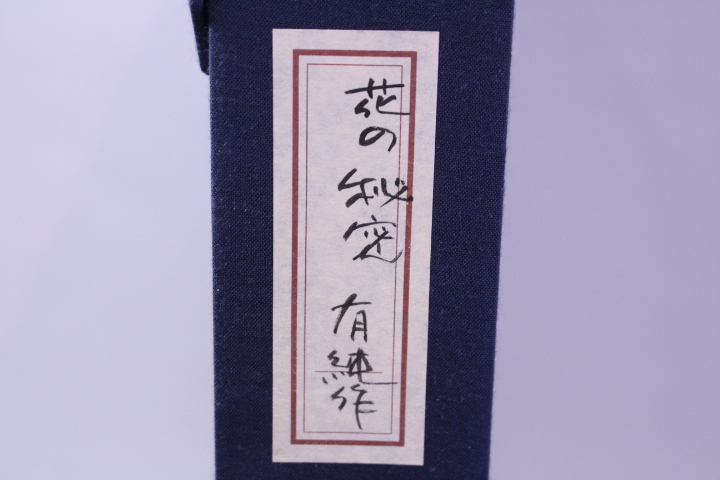 花の秘密 有純作